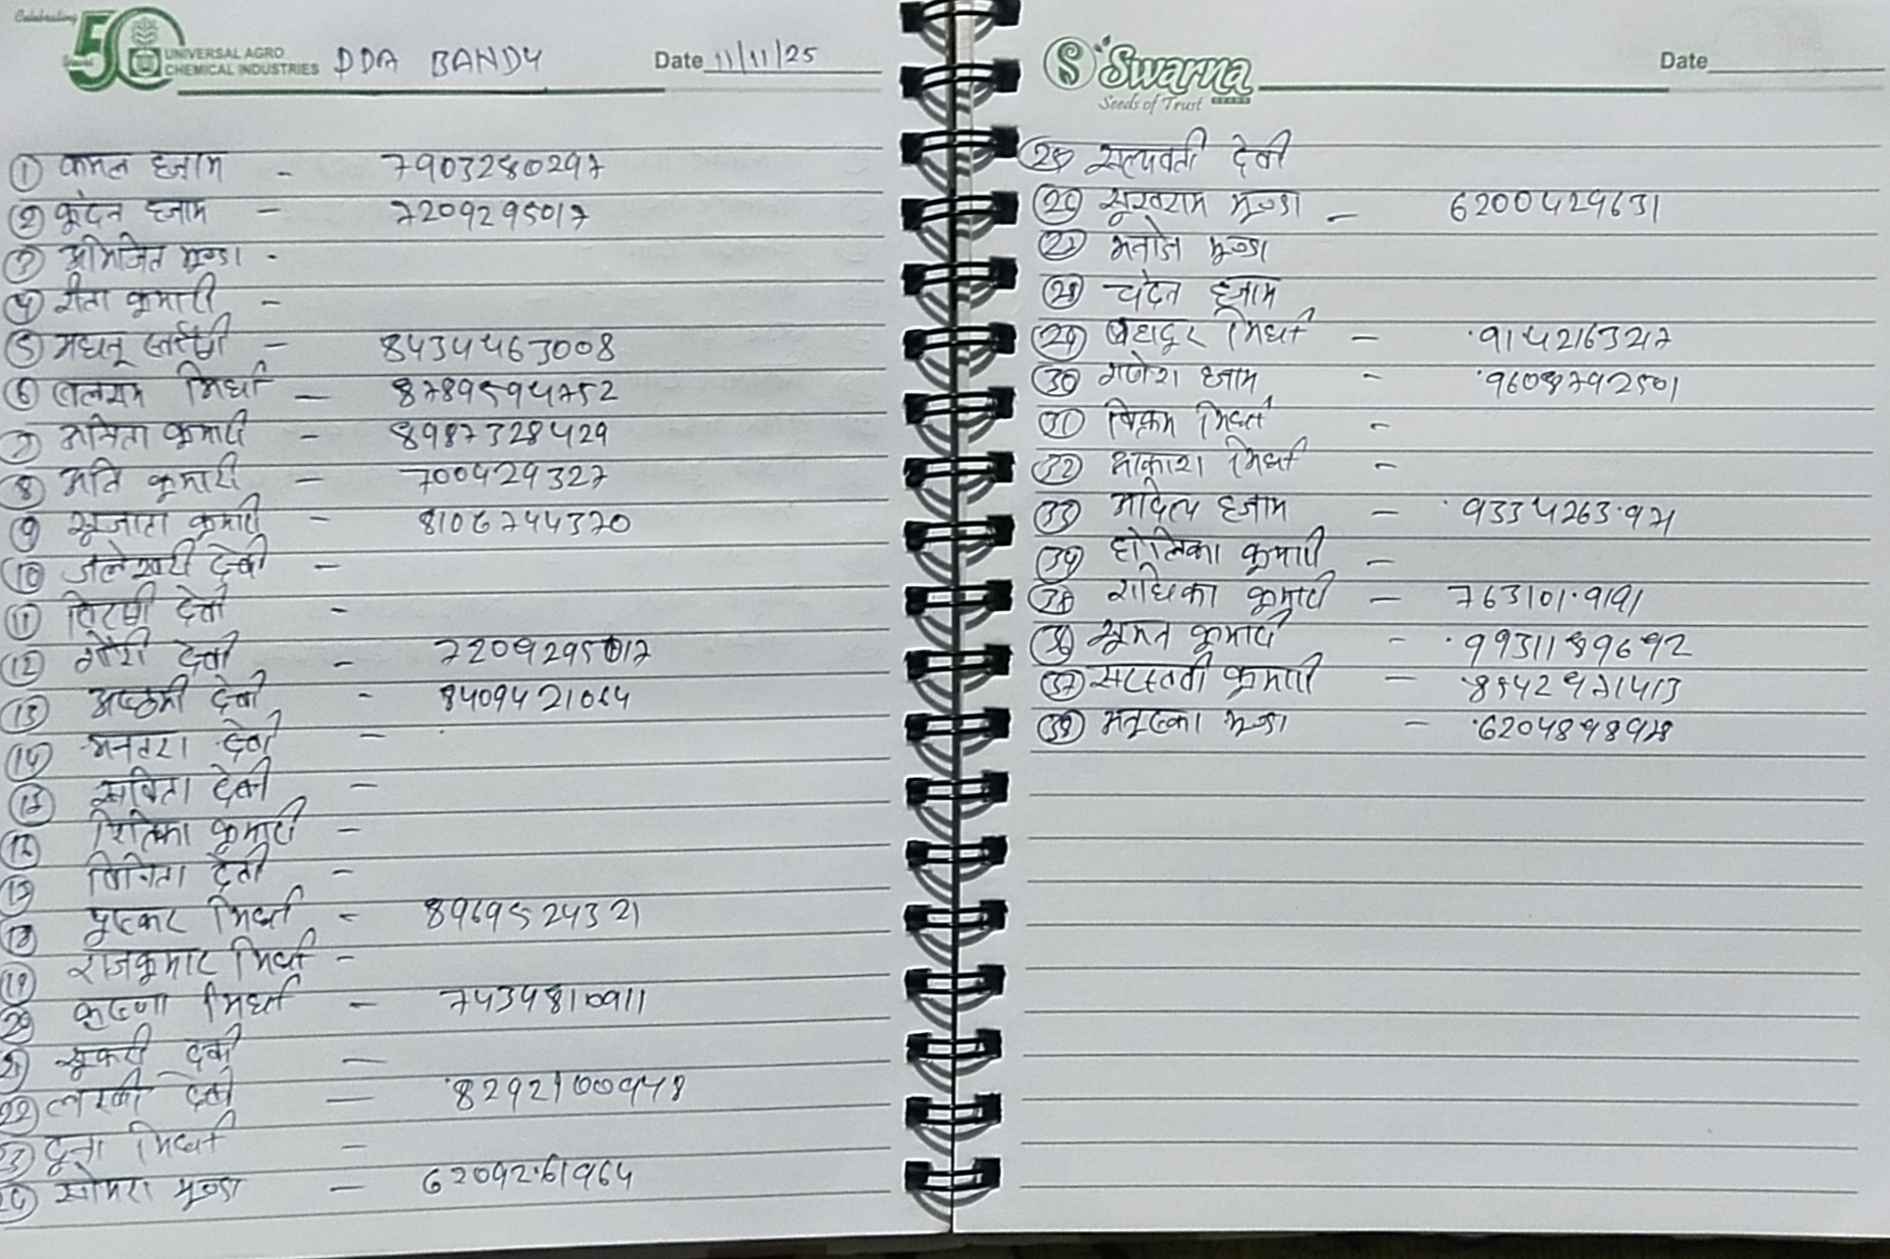 Celebrating
50
UNIVERSAL AGRO
CHEMICAL INDUSTRIES
DDA BANDU
Date 11/11/25
① कमल हजाम - 7903280297
② कुंदन हजाम - 7209295017
③ अभिजित मुण्डा -
④ रीता कुमारी -
⑤ मधनू - 8434463008
⑥ बलराम मिर्धा - 8789594752
⑦ अनिता कुमारी - 8987328429
⑧ कुमारी - 700429327
⑨ सुजाता कुमारी - 8106744370
⑩ जलेश्वरी देवी -
⑪ देवी -
⑫ गौरी देवी - 7209295017
⑬ अष्ठमी देवी - 8409421064
⑭ देवी -
⑮ सबिता देवी -
⑯ रितिका कुमारी -
⑰ बिनिता देवी -
⑱ पुष्कर मिर्धा - 8969524321
⑲ राजकुमार मिर्धा -
⑳ कृष्णा मिर्धा - 7434810911
㉑ सुकरी देवी -
㉒ लखी देवी - 8292100948
㉓ मिर्धा -
㉔ सोमरा मुण्डा - 6209261964
Swarna
Seeds of Trust
Date
㉕ सत्यवती देवी
㉖ सुखराम मुण्डा - 6200429631
㉗ मनोज मुण्डा
㉘ चंदन हजाम
㉙ बहादुर मिर्धा - 9142163217
㉚ गणेश हजाम - 9608792501
㉛ बिक्रम मिर्धा -
㉜ आकाश मिर्धा -
㉝ आदित्य हजाम - 9334263971
㉞ होलिका कुमारी -
㉟ राधिका कुमारी - 7631019191
㊱ सुमन कुमारी - 9931189692
㊲ सरस्वती कुमारी - 8542971413
㊳ मुण्डा - 6204898978